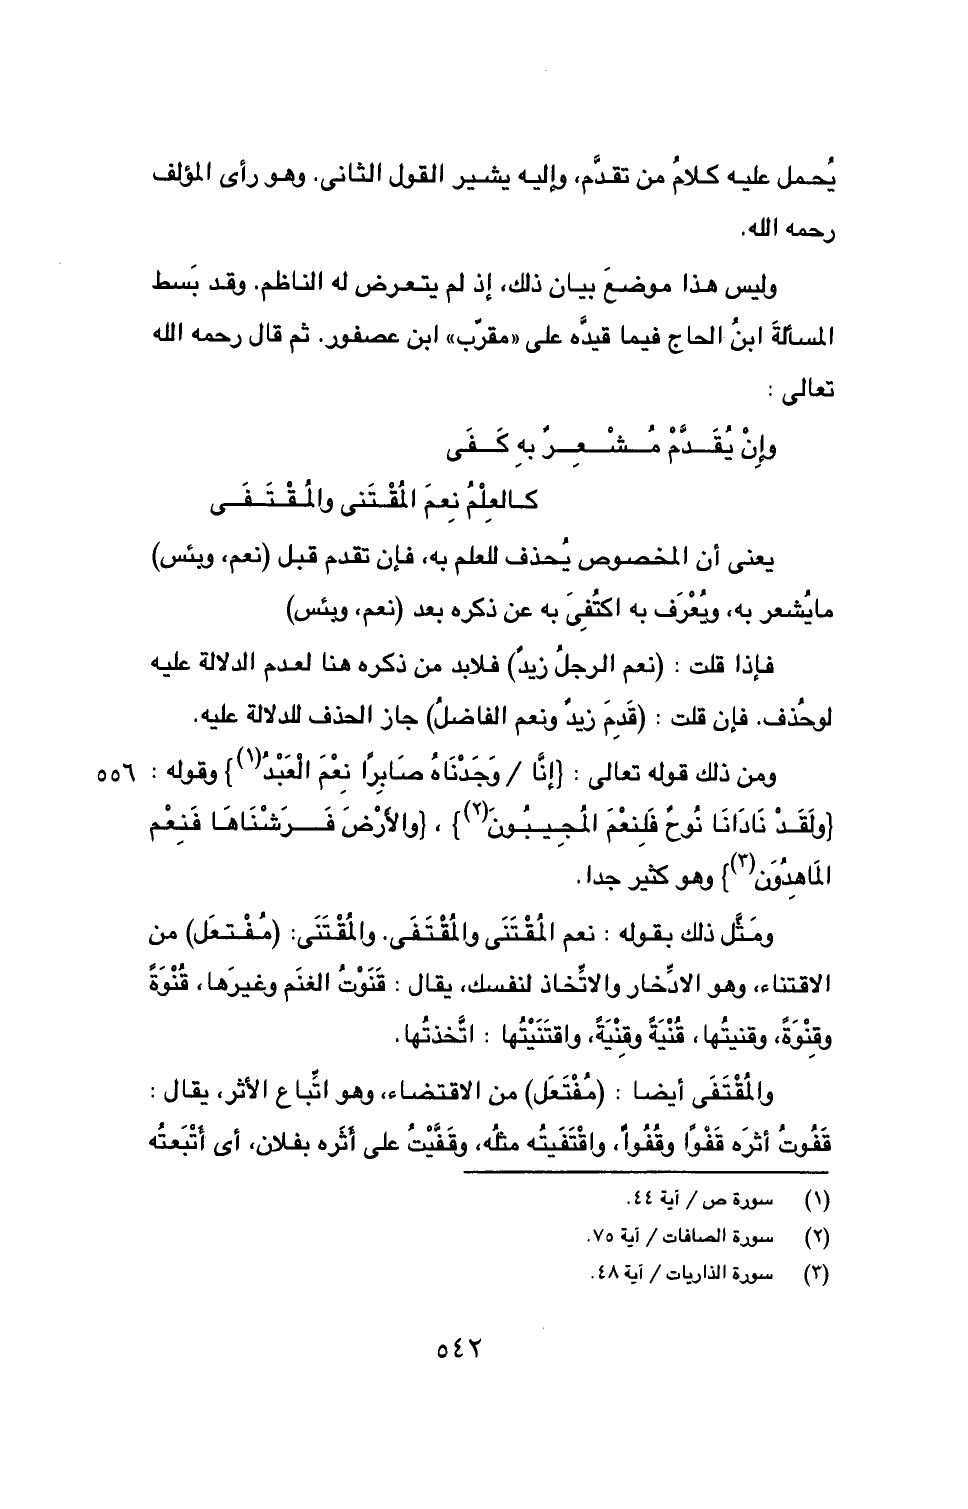 يُحمل عليه كلامُ من تقدَّم، وإليه يشير القول الثانى. وهو رأى المؤلف
رحمه الله.
وليس هذا موضعَ بيان ذلك، إذ لم يتعرض له الناظم. وقد بَسط
المسألةَ ابنُ الحاج فيما قيدَّه على «مقرّب» ابن عصفور. ثم قال رحمه الله
تعالى :
وإِنْ يُقَـدَّمْ مُـشْـعِـرٌ بهِ كَـفَى
كـالعِلْمُ نِعمَ المُقْتَنى والمُـقْـتَـفَـى
يعنى أن المخصوص يُحذف للعلم به، فإن تقدم قبل (نعم، وبئس)
مايُشعر به، ويُعْرَف به اكتُفِىَ به عن ذكره بعد (نعم، وبئس)
فإذا قلت : (نعم الرجلُ زيدٌ) فلابد من ذكره هنا لعدم الدلالة عليه
لوحُذف. فإن قلت : (قَدِمَ زيدٌ ونعم الفاضلُ) جاز الحذف للدلالة عليه.
ومن ذلك قوله تعالى : {إنَّا / وَجَدْنَاهُ صَابِراً نِعْمَ الْعَبْدُ(١)} وقوله : ٥٥٦
{ولَقَدْ نَادَانَا نُوحٌ فَلَنِعْمَ المُجِيـبُـونَ(٢)} ، {والأَرْضَ فَـرَشْنَاهَا فَنِعْم
المَاهِدُونَ(٣)} وهو كثير جدا.
ومَثَّل ذلك بقوله : نعم المُقْتَنَى والمُقْتَفَى. والمُقْتَنى: (مُفْـتـعَل) من
الاقتناء، وهو الادِّخار والاتِّخاذ لنفسك، يقال : قَنَوْتُ الغنَم وغيرَها، قُنْوَةً
وقِنْوَةً، وقنيتُها، قُنْيَةً وقِنْيَةً، واقتَنَيْتُها : اتَّخذتُها.
والمُقْتَفَى أيضا : (مُفْتَعَل) من الاقتضاء، وهو اتِّباع الأثر، يقال :
قَفُوتُ أثرَه قَفْواً وقُفُواً، واقْتَفَيتُه مثلُه، وقَفَّيْتُ على أَثَره بفلان، أى أَتْبَعتُه
(١) سورة ص / آية ٤٤.
(٢) سورة الصافات / آية ٧٥.
(٣) سورة الذاريات / آية ٤٨.
٥٤٢